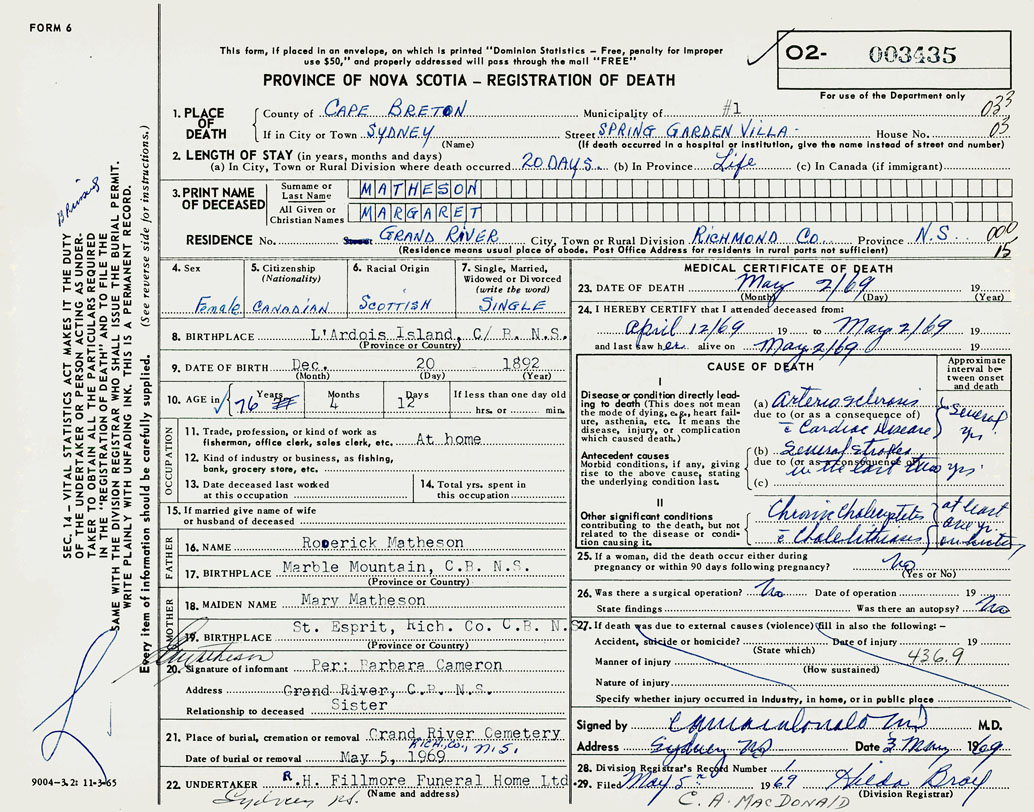 FORM 6
This form, if placed in an envelope, on which is printed "Dominion Statistics – Free, penalty for improper
use $50," and properly addressed will pass through the mail "FREE"
PROVINCE OF NOVA SCOTIA – REGISTRATION OF DEATH
O2- 003435
For use of the Department only
1. PLACE OF DEATH County of CAPE BRETON Municipality of #1 033
If in City or Town SYDNEY Street SPRING GARDEN VILLA - House No. 03
(Name) (If death occurred in a hospital or institution, give the name instead of street and number)
2. LENGTH OF STAY (in years, months and days)
(a) In City, Town or Rural Division where death occurred 20 DAYS (b) In Province Life (c) In Canada (if immigrant)
3. PRINT NAME OF DECEASED Surname or Last Name MATHESON
All Given or Christian Names MARGARET
RESIDENCE No. Street GRAND RIVER City, Town or Rural Division RICHMOND CO. Province N.S. 000
(Residence means usual place of abode. Post Office Address for residents in rural parts not sufficient) 15
4. Sex Female
5. Citizenship (Nationality) CANADIAN
6. Racial Origin SCOTTISH
7. Single, Married, Widowed or Divorced (write the word) SINGLE
8. BIRTHPLACE L'Ardois Island, C/ B. N.S.
(Province or Country)
9. DATE OF BIRTH Dec. 20 1892
(Month) (Day) (Year)
10. AGE in Years 76 Months 4 Days 12 If less than one day old
hrs. or min.
OCCUPATION
11. Trade, profession, or kind of work as
fisherman, office clerk, sales clerk, etc. At home
12. Kind of industry or business, as fishing,
bank, grocery store, etc.
13. Date deceased last worked
at this occupation
14. Total yrs. spent in
this occupation
15. If married give name of wife
or husband of deceased
FATHER
16. NAME Roderick Matheson
17. BIRTHPLACE Marble Mountain, C.B. N.S.
(Province or Country)
MOTHER
18. MAIDEN NAME Mary Matheson
19. BIRTHPLACE St. Esprit, Rich. Co. C.B. N.S
(Province or Country)
Matheson
20. Signature of informant Per: Barbara Cameron
Address Grand River, C.B. N.S.
Relationship to deceased Sister
21. Place of burial, cremation or removal Grand River Cemetery
RICH. CO., N.S.
Date of burial or removal May 5, 1969
22. UNDERTAKER R.H. Fillmore Funeral Home Ltd
(Name and address)
Sydney N.S.
MEDICAL CERTIFICATE OF DEATH
23. DATE OF DEATH May 2/69 19
(Month) (Day) (Year)
24. I HEREBY CERTIFY that I attended deceased from:
April 12/69 19 to May 2/69 19
and last saw her alive on May 2/69 19
CAUSE OF DEATH
Approximate interval between onset and death
I
Disease or condition directly leading to death (This does not mean
the mode of dying, e.g., heart failure, asthenia, etc. It means the
disease, injury, or complication
which caused death.)
(a) Arteriosclerosis
due to (or as a consequence of)
c̄ Cardiac Disease
Several yrs.
Antecedent causes
Morbid conditions, if any, giving
rise to the above cause, stating
the underlying condition last.
(b) Several strokes
due to (or as a consequence of)
in the last two yrs.
(c)
II
Other significant conditions
contributing to the death, but not
related to the disease or condition causing it.
Chronic Cholecystitis
c̄ Cholelithiasis
at least one yr.
25. If a woman, did the death occur either during
pregnancy or within 90 days following pregnancy? No
(Yes or No)
26. Was there a surgical operation? No Date of operation 19
State findings Was there an autopsy? No
27. If death was due to external causes (violence) fill in also the following: –
Accident, suicide or homicide? Date of injury 19
(State which)
Manner of injury 436.9
(How sustained)
Nature of injury
Specify whether injury occurred in Industry, in home, or in public place
Signed by M.D.
Address Sydney NS Date 3 May 1969
28. Division Registrar's Record Number 1
29. Filed May 5 1969 Hilda
(Division Registrar)
C. A. MACDONALD
SEC. 14 – VITAL STATISTICS ACT MAKES IT THE DUTY
OF THE UNDERTAKER OR PERSON ACTING AS UNDERTAKER TO OBTAIN ALL THE PARTICULARS REQUIRED
IN THE "REGISTRATION OF DEATH" AND TO FILE THE
SAME WITH THE DIVISION REGISTRAR WHO SHALL ISSUE THE BURIAL PERMIT.
WRITE PLAINLY WITH UNFADING INK. THIS IS A PERMANENT RECORD.
Every item of information should be carefully supplied. (See reverse side for instructions.)
9004-3.2: 11-3-65